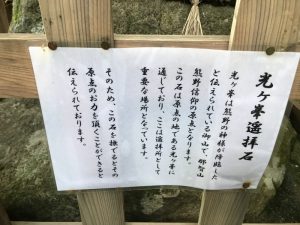 光ヶ峯遥拝石
光ヶ峯は熊野の神様が降臨した
と伝えられている御山で、那智山
熊野信仰の原点となります。
この石は原点の地である光ヶ峯に
通じており、ここは遥拝所として
重要な場所となっています。
そのため、この石を撫でるとその
原点のお力を頂くことができると
伝えられております。